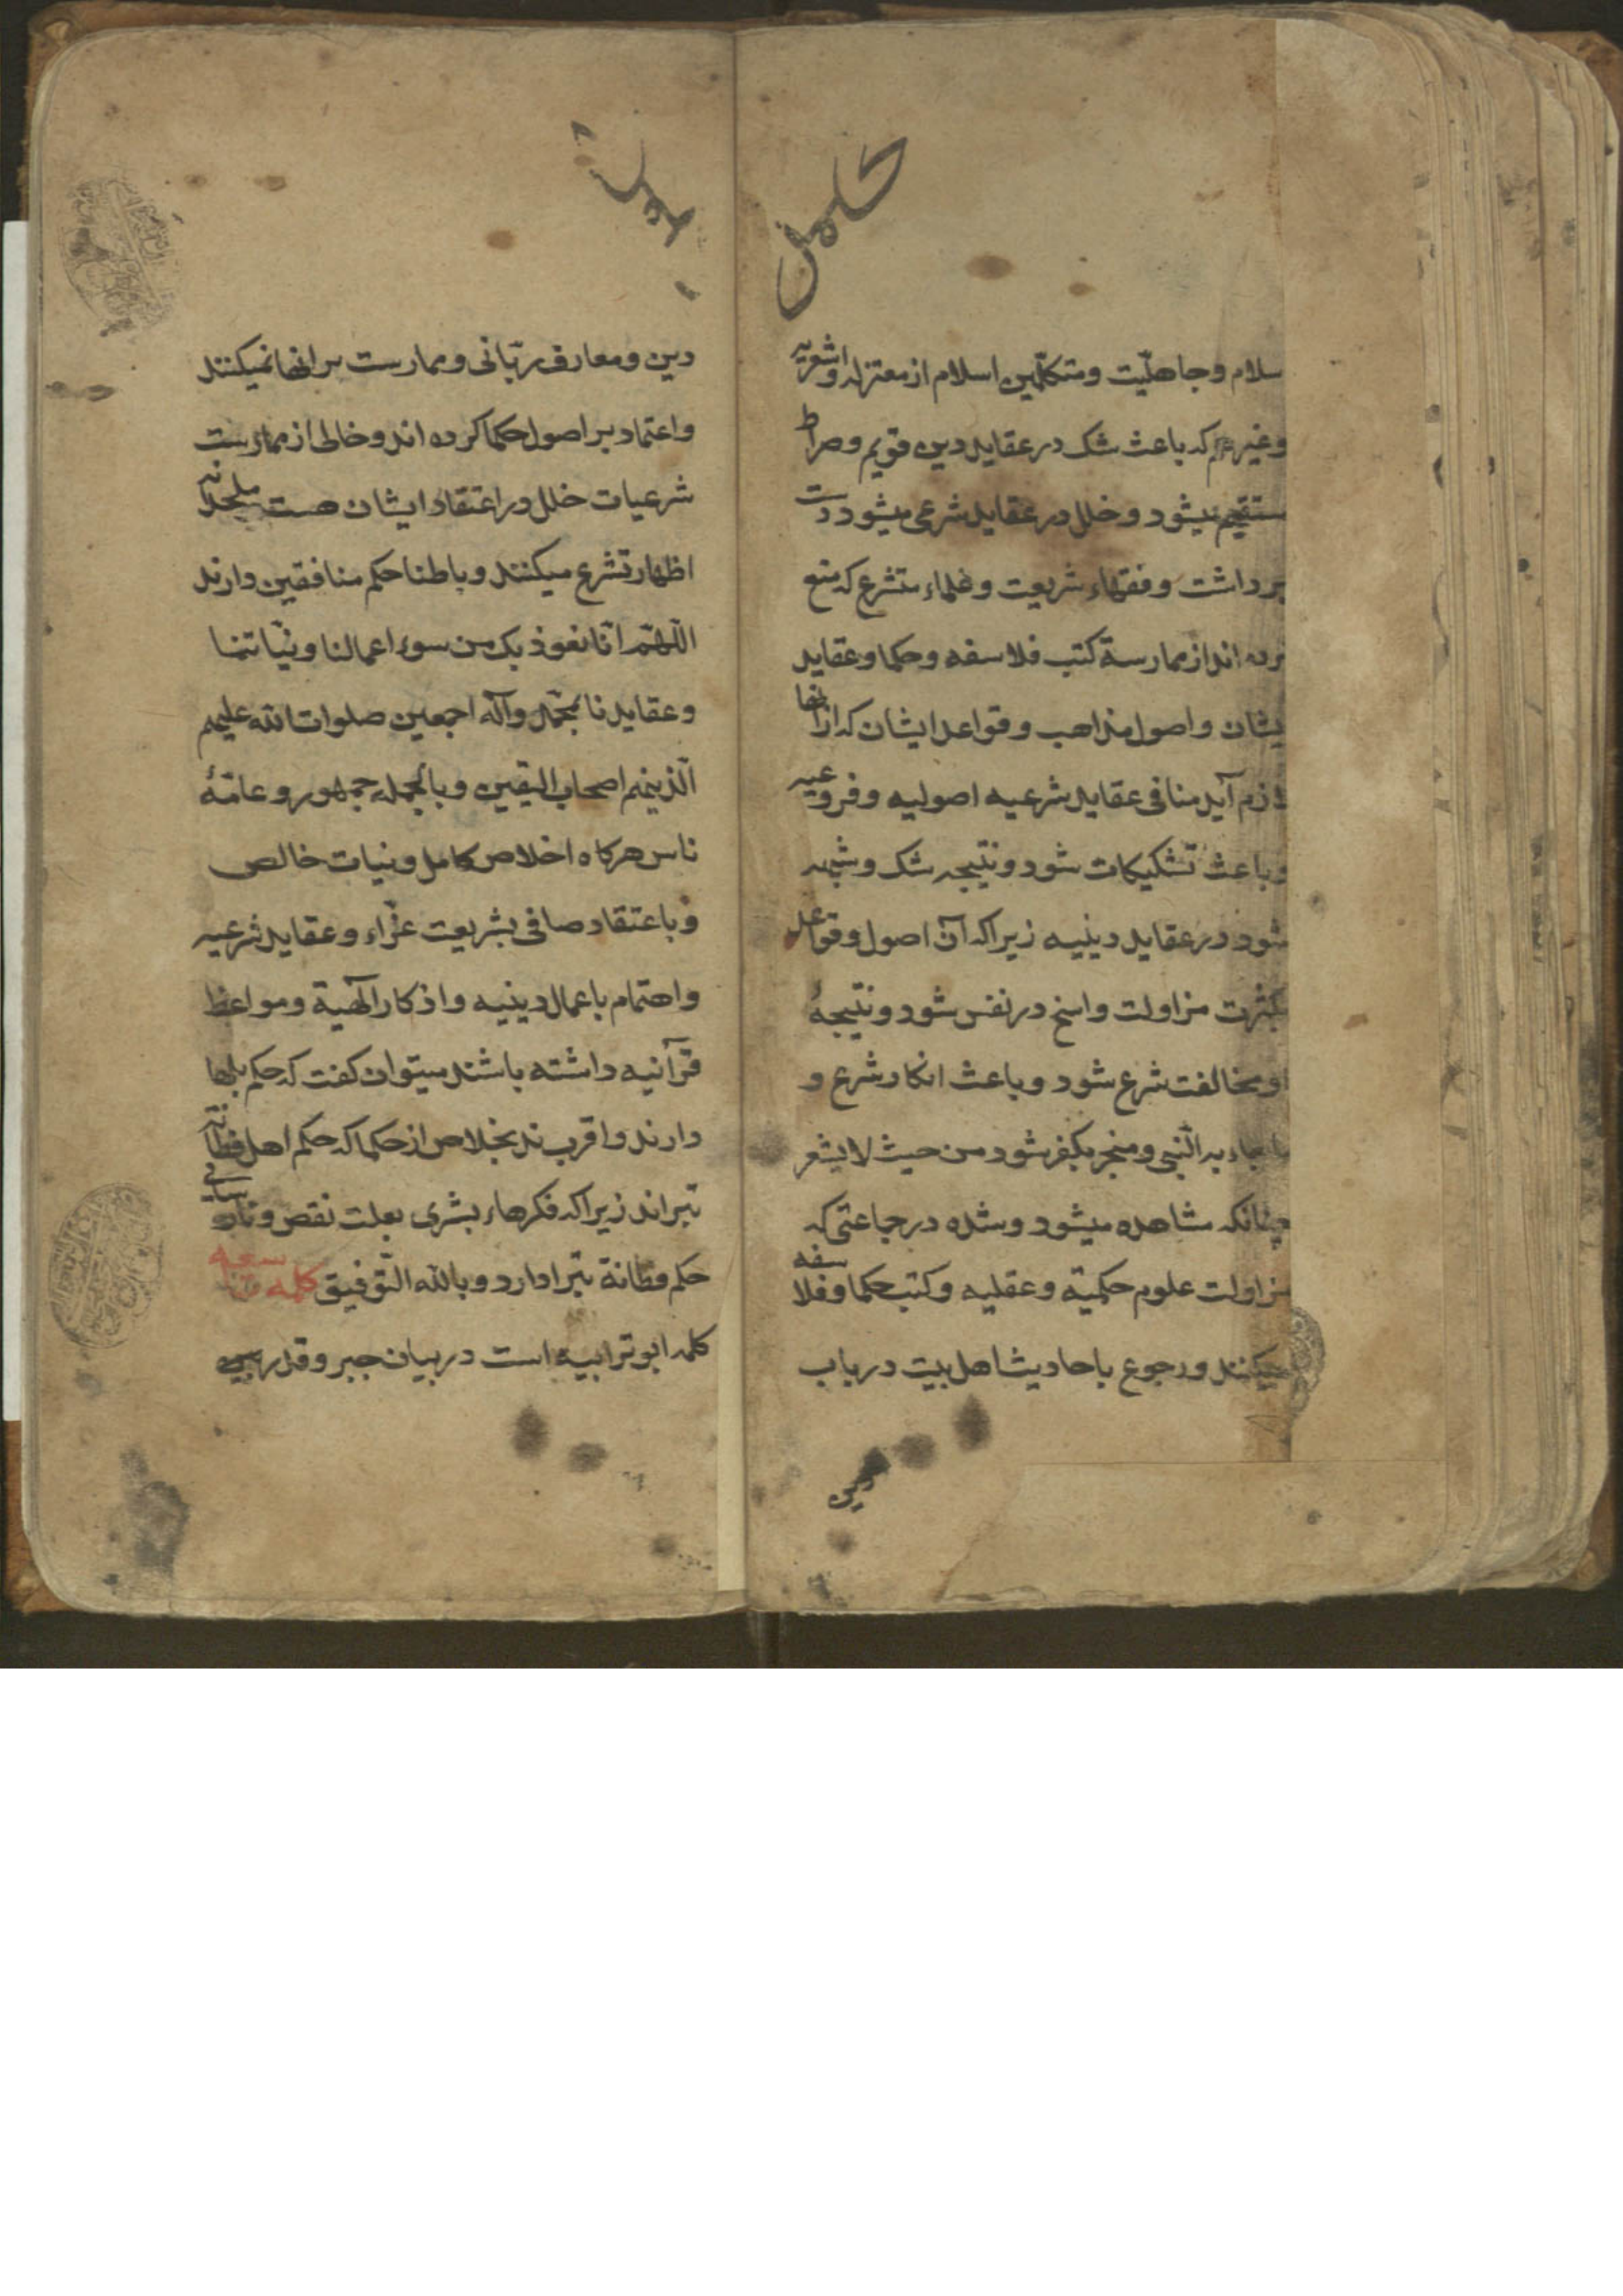 سلام و جاهلیت و متکلمین اسلام از معتزله و اشعریه
و غیرهم که باعث شک در عقاید دین قویم و صراط
ستقیم میشود و خلل در عقاید شرعی میشود دست
برداشت و فقهاء شریعت و علماء متشرع که منع
کرده اند از ممارسة کتب فلاسفه و حکما و عقاید
یشان و اصول مذاهب و قواعد ایشان که از انها
لازم آید منافی عقاید شرعیه اصولیه و فروعیه
و باعث تشکیکات شود و نتیجه شک و شبهه
شود در عقاید دینیه زیرا که آن اصول و قواعد
بکثرت مزاولت واسخ در نفس شود و نتیجهٔ
او مخالفت شرع شود و باعث انکار شرع و
ما جاء به النبی و منجر بکفر شود من حیث لا یشعر
چنانکه مشاهده میشود و شده در جماعتی که
مزاولت علوم حکمیّه و عقلیه و کتب حکما و فلاسفه
میکنند و رجوع باحادیث اهل بیت در باب
دین
دین و معارف ربّانی و ممارست بر انها نمیکنند
و اعتماد بر اصول حکما کرده اند و خالی از ممارست
شرعیات خلل در اعتقاد ایشان هست ملحدانه
اظهار تشرع میکنند و باطنا حکم منافقین دارند
اللّهمّ انّا نعوذ بک من سوء اعمالنا و نیّاتنا
و عقایدنا بمحمّد وآله اجمعین صلوات الله علیهم
الّذینهم اصحاب الیقین و بالجمله جمهور و عامّهٔ
ناس هرکاه اخلاص کامل و نیات خالص
و باعتقاد صافی بشریعت غرّاء و عقاید شرعیه
و اهتمام باعمال دینیه و اذکار الٓهیة و مواعظ
قرآنیه داشته باشند میتوان کفت که حکم بلها
دارند و اقرب ند بخلاص از حکما که حکم اهل فطانه
بتبراند زیرا که فکرهاء بشری بعلت نقص و نارسایی
حکم فطانة بتبرا دارد و بالله التّوفیق کلمه
کلمه ابو ترابیه است در بیان جبر و قدر